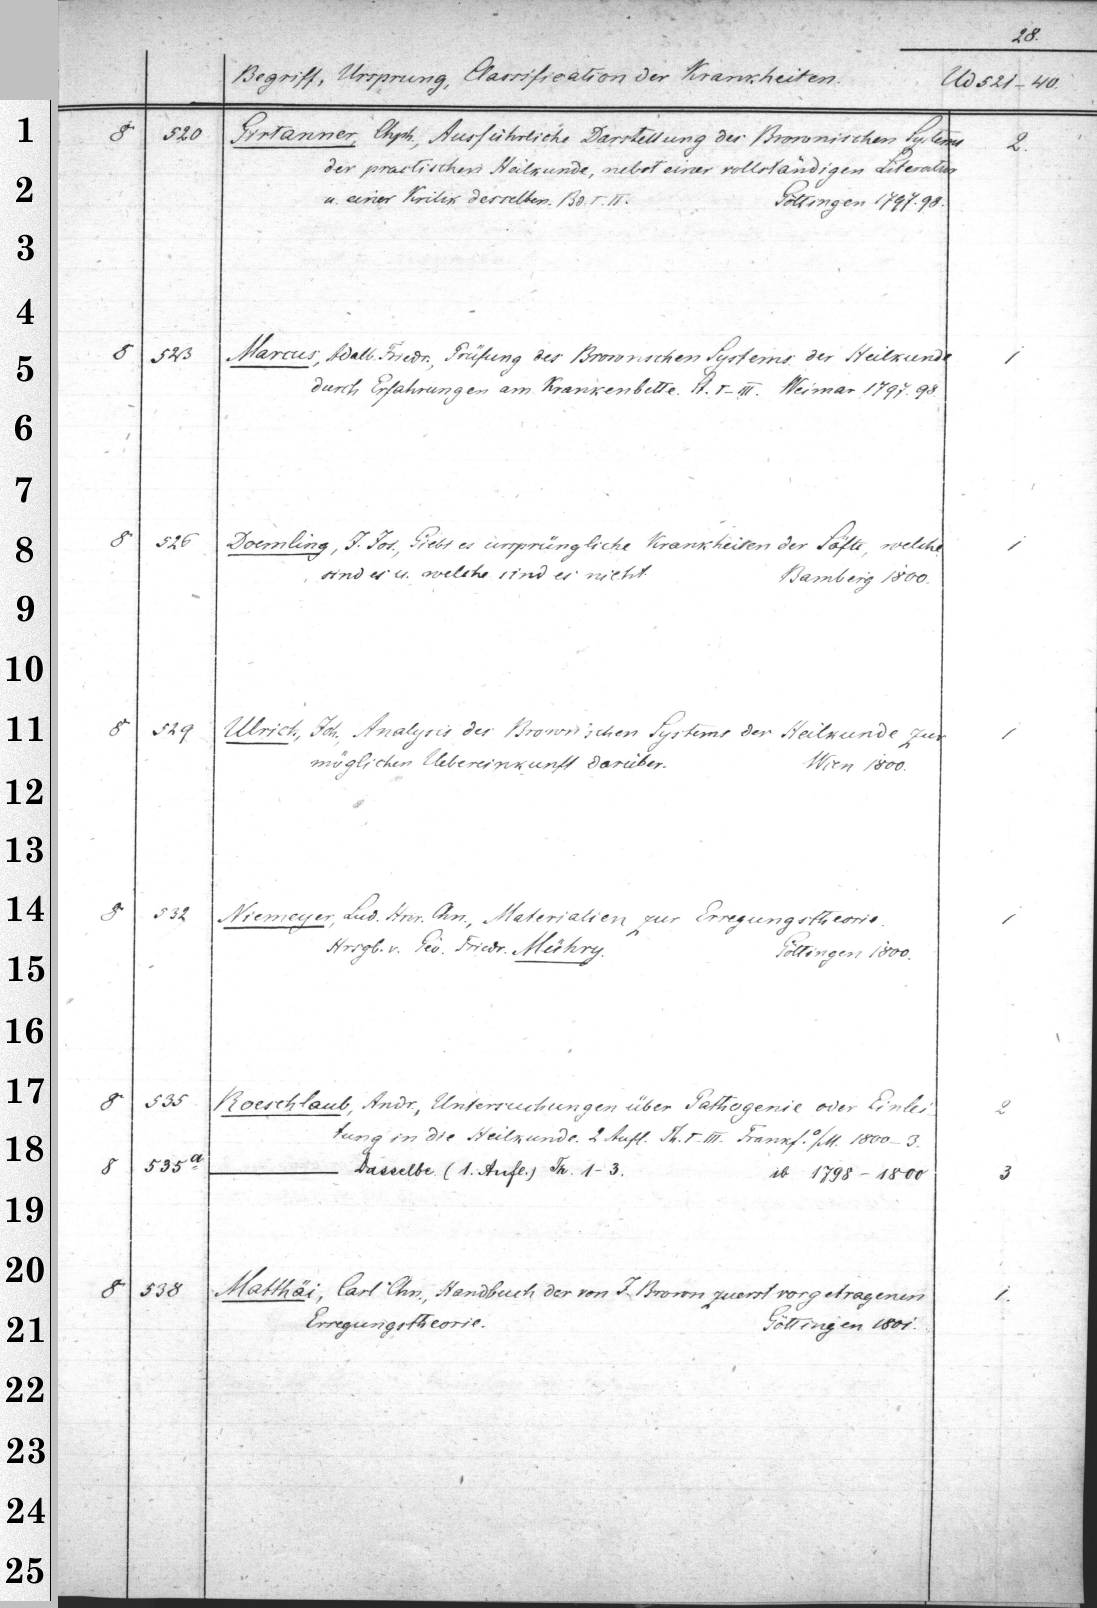 28.
Begriff, Ursprung, Classification der Krankheiten. Ud 521–40.
1
8 520 Girtanner, Chph., Ausführliche Darstellung des Brownischen Systems 2.
der practischen Heilkunde, nebst einer vollständigen Literatur
2
u. einer Kritik desselben. Bd. I. II. Göttingen 1797. 98.
3
4
8 523 Marcus, Adalb. Friedr., Prüfung des Brownschen Systems der Heilkunde 1
5
durch Erfahrungen am Krankenbette. St. I–III. Weimar 1797. 98.
6
7
8 526 Doemling, J. Jos., Giebt es ursprüngliche Krankheiten der Säfte, welche 1
8
sind es u. welche sind es nicht. Bamberg 1800.
9
10
11
8 529 Ulrich, Joh., Analysis des Brownischen Systems der Heilkunde zur 1
möglichen Uebereinkunft darüber. Wien 1800.
12
13
14
8 532 Niemeyer, Lud. Hnr. Chn., Materialien zur Erregungstheorie. 1
Hrsgb. v. Geo. Friedr. Mühry. Göttingen 1800.
15
16
17
8 535 Roeschlaub, Andr., Untersuchungen über Pathogenie oder Einlei- 2
tung in die Heilkunde. 2 Aufl. Th. I–III. Frankf. a/M. 1800–3.
18
8 535a Dasselbe. (1. Aufl.) Th. 1–3. ib 1798–1800 3
19
20
8 538 Matthäi, Carl Chn., Handbuch der von J. Brown zuerst vorgetragenen 1.
21
Erregungstheorie. Göttingen 1801.
22
23
24
25